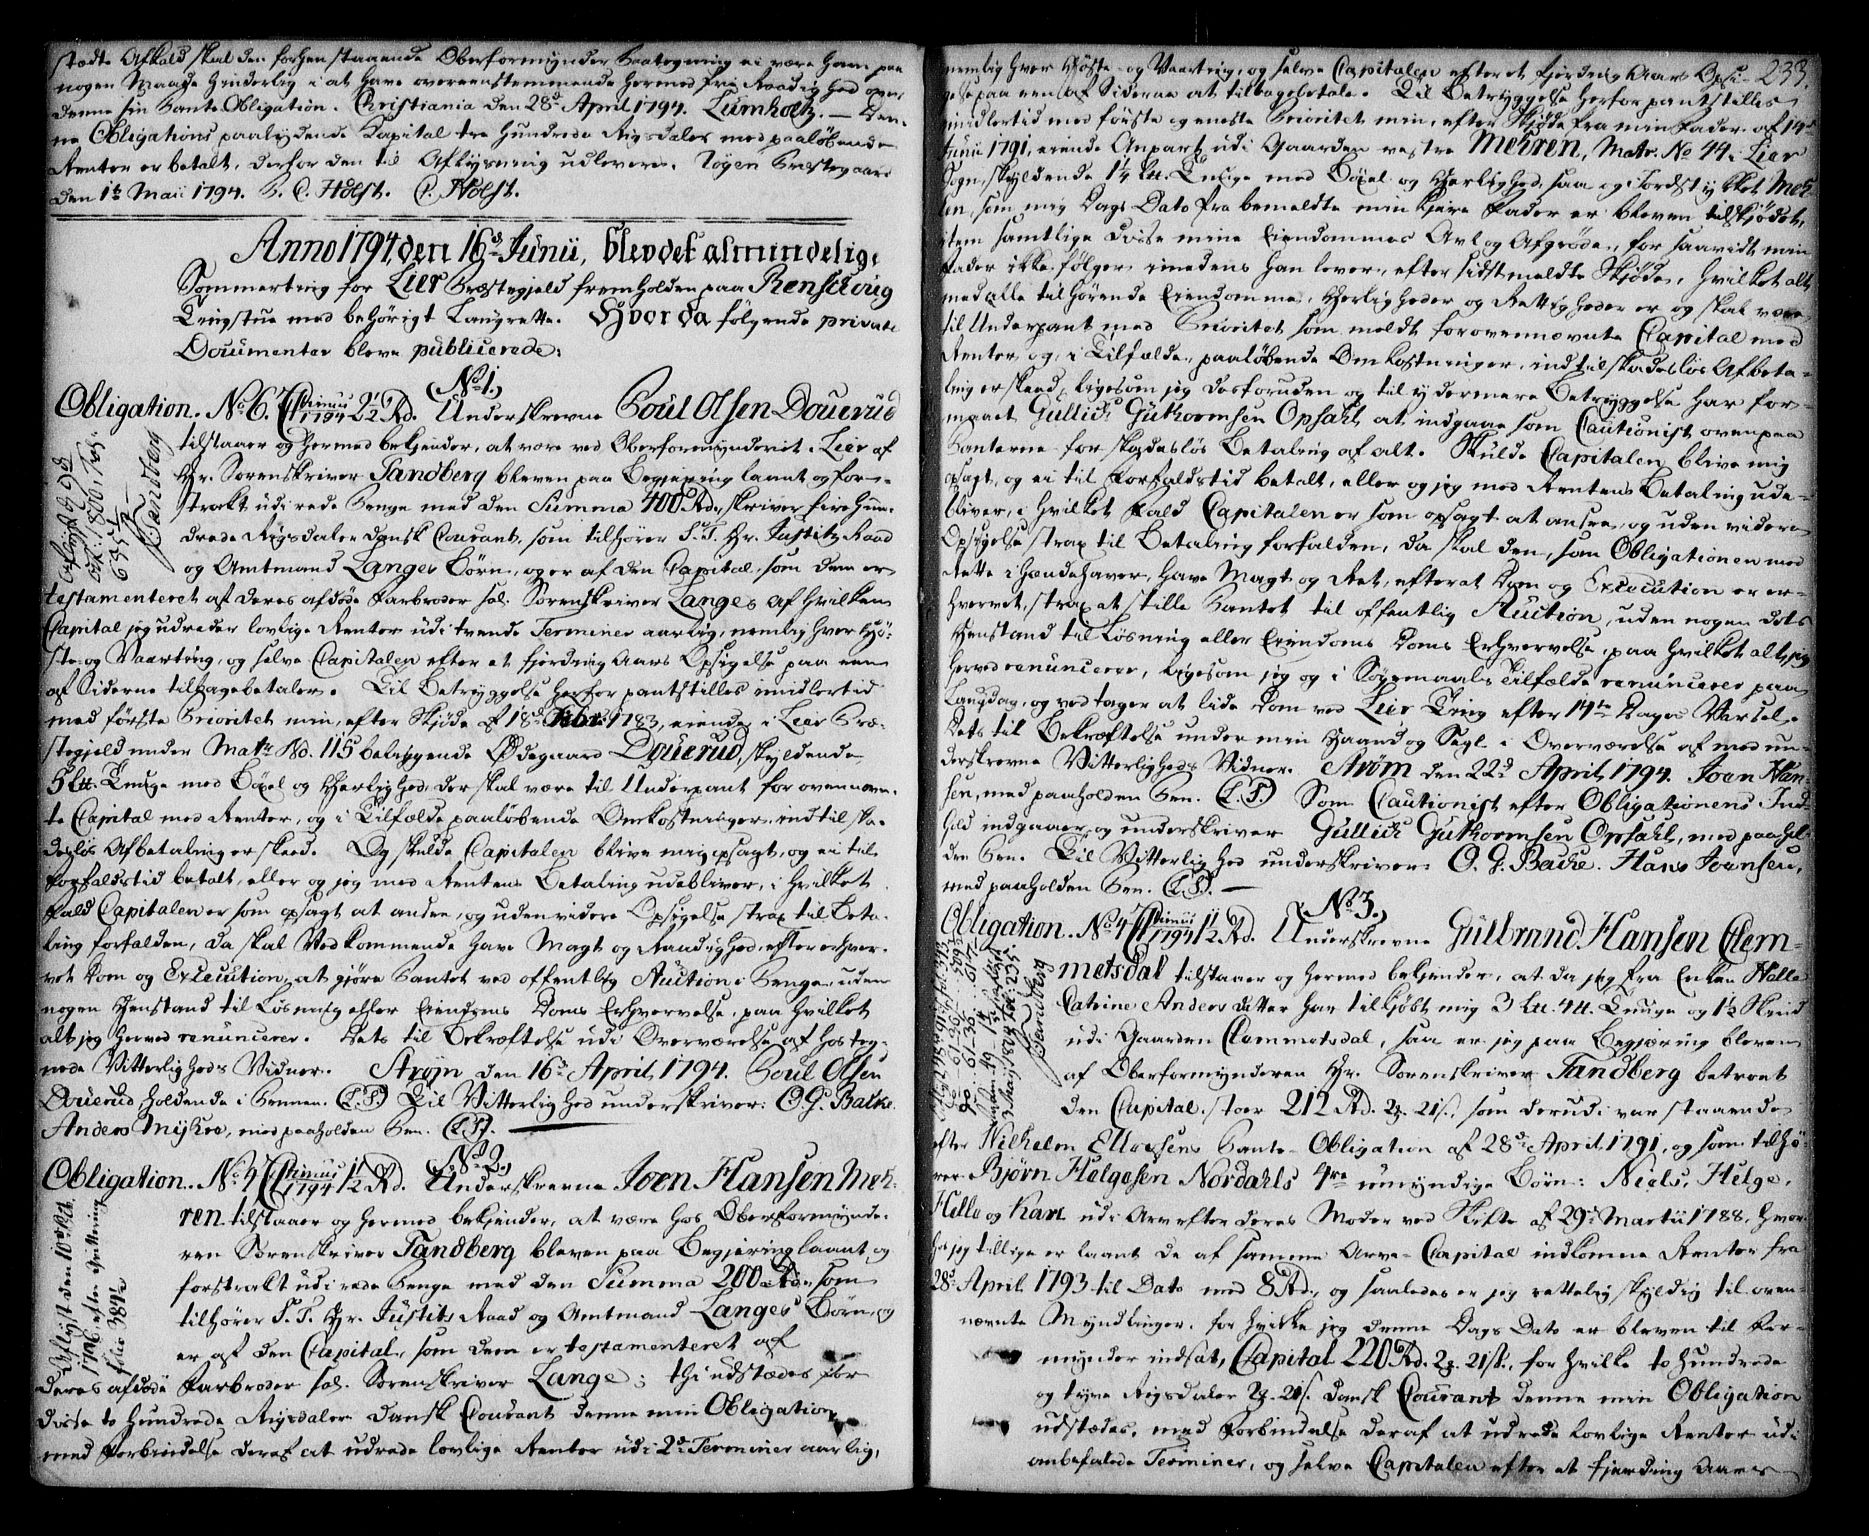 stædte Afkald skal den forhen staaende Oberformynder Paategning ei være ham paa
nogen Maade hinderlig i at have overeenstemmende hermed frie Raadighed over
denne sin Pante Obligation. Christiania den 28de April 1794. Lumholtz. — Den-
ne Obligations paalydende Capital tre Hundrede Rigsdaler med paaløbende
Renter er betalt, derfor den til Aflysning udleveres. Præstegaard
den 1te Maii 1794. P. C. Holst. C. Holst.
Anno 1794, den 16de Junii, blev det almindelige
Sommerting for Lier Præstegjeld fremholden paa Renschoug
Tingstue med behørigt Laugrette. Hvor da følgende private
Documenter bleve publicerede:
No 1.
Obligation. No 6. 1794 2 1/2 Rd. Underskrevne Poul Olsen Douerud
tilstaaer og hermed bekjender, at være ved Oberformynderiet i Lier af
Hr. Sorenskriver Tandberg bleven paa Begjering laant og for-
strakt udi rede Penge med den Summa 400 Rd. skriver fire Hun-
drede Rigsdaler Dansk Courant, som tilhører S. T. Hr. Justitz Raad
og Amtmand Langes Børn, og er af den Capital, som dem er
testamenteret af deres afdøde Farbroder sal. Sorenskriver Langes af hvilken
Capital jeg udreder lovlige Renter udi tvende Terminer aarlig, nemlig hver Hø-
ste- og Vaarting, og selve Capitalen efter et fjerding Aars Opsigelse paa een
af Siderne tilbagebetaler. Til Betryggelse herfor pantstilles imidlertid
med første Prioritet min, efter Skjøde af 18de Febr. 1783, eiende, i Lier Præ-
stegjeld under Matr. No. 115 beliggende Ødegaard Douerud, skyldende
5 Lt. Tunge med Bøxel og Herlighed, der skal være til Underpant for ovennævn-
te Capital med Renter, og i Tilfælde paaløbende Omkostninger, indtil ska-
desløs Afbetaling er skeed. Og skulde Capitalen blive mig opsagt, og ei til
Forfaldstid betalt, eller og jeg med Rentens Betaling udebliver, i hvilket
Fald Capitalen er som opsagt at ansee, og uden videre Opsigelse strax til Beta-
ling forfalden, da skal Vedkommende have Magt og Raadighed, efter erhver-
vet Dom og Execution, at gjøre Pantet ved offentlig Auction i Penge, uden
nogen Henstand til Løsning eller Eiendoms Doms Erhvervelse, paa hvilket
alt jeg herved renuncerer. Dets til Bekræftelse udi Overværelse af hos teg-
nede Vitterligheds Vidner. Strøm den 16de April 1794. Poul Olsen
Douerud holdende i Pennen. (L. S.) Til Vitterlighed underskriver: O. G. Bache.
Anders Myhre, med paaholden Pen. (L. S.)
Aflyst
1801
Tandberg
No 2.
Obligation. No 4 1794 1 1/2 Rd. Underskrevne Joen Hansen Meh-
ren tilstaaer og hermed bekjender, at være hos Oberformynde-
ren Sorenskriver Tandberg bleven paa Begjering laant og
forstrakt udi rede Penge med den Summa 200 Rd. som
tilhører S. T. Hr. Justits Raad og Amtmand Langes Børn, og
er af den Capital, som dem er testamenteret af
deres afdøde Farbroder sal. Sorenskriver Lange; thi udstædes for
disse to Hundrede Rigsdaler Dansk Courant denne min Obligation
med Forbindelse deraf at udrede lovlige Renter udi 2de Terminer aarlig,
Aflyst den 10de
efter Qvittering
233.
nemlig hver Høste- og Vaarting, og selve Capitalen efter et fjerding Aars Opsi-
gelse paa een af Siderne at tilbagebetale. Til Betryggelse herfor pantstilles
imidlertid med første og eneste Prioritet min, efter Skjøde fra min Fader af 14de
Junii 1791, eiende Anpart udi Gaarden vestre Mehren, Matr. No 44 i Lier
Sogn, skyldende 1 1/4 Lt. Tunge med Bøxel og Herlighed, saa og Jordstykket
som mig Dags Dato fra bemeldte min kjære Fader er bleven tilskjødet,
item samtlige disse mine Eiendommes Avl og Afgrøde, for saavidt min
Fader ikke følger imedens han lever, efter sidstmeldte Skjøde, hvilket alt
med alle tilhørende Eiendomme, Herligheder og Rettigheder er og skal være
til Underpant med Prioritet som meldt for ovennævnte Capital med
Renter og, i Tilfælde, paaløbende Omkostninger, indtil skadesløs Afbeta-
ling er skeed, ligesom jeg desforuden og til ydermere Betryggelse har for-
maaet Gullich Guthormsen Opsahl at indgaae som Cautionist ovenpaa
Panterne for skadesløs Betaling af alt. Skulde Capitalen blive mig
opsagt, og ei til Forfaldstid betalt, eller og jeg med Rentens Betaling ude-
bliver, i hvilket Fald Capitalen er som opsagt at ansee, og uden videre
Opsigelse strax til Betaling forfalden, da skal den, som Obligationen med
Rette i Hændehaver, have Magt og Ret, efter at Dom og Execution er er-
hvervet, strax at stille Pantet til offentlig Auction, uden nogen Dets
Henstand til Løsning eller Eiendoms Doms Erhvervelse, paa hvilket alt jeg
herved renuncerer, ligesom jeg og i Søgemaals Tilfælde renuncerer paa
Laugdag, og vedtager at lide Dom ved Lier Ting efter 14ten Dages Varsel.
Dets til Bekræftelse under min Haand og Segl i Overværelse af med un-
derskrevne Vitterligheds Vidner. Strøm den 22de April 1794. Joen Han-
sen, med paaholden Pen. (L. S.) Som Cautionist efter Obligationens Ind-
hold indgaaer og underskriver Gullich Guthormsen Opsahl, med paahol-
den Pen. Til Vitterlighed underskriver: O. G. Bache. Hans Joensen,
med paaholden Pen. (L. S.) —
No 3.
Obligation. No 4 1794 1 1/2 Rd. Underskrevne Gulbrand Hansen Clem-
metsdal tilstaaer og hermed bekjender, at da jeg fra Enken Halle
Catrine Anders Datter har tilkjøbt mig 3 Lt. 4 t. Tunge og 1 1/2 Skind
udi Gaarden Clemmetsdal, saa er jeg paa Begjering bleven
af Oberformynderen Hr. Sorenskriver Tandberg betroet
den Capital, stor 212 Rd. 2 21 s., som derudi var staaende
efter Wilhelm Ellevsens Pante-Obligation af 28de April 1791, og som tilhø-
rer Bjørn Helgesen Nordahls 4re umyndige Børn: Niels, Helge,
Helle og Kari udi Arv efter deres Moder ved Skifte af 29de Martii 1788, hvor-
hos jeg tillige er laant de af samme Arve-Capital indkomne Renter fra
28de April 1793 til Dato med 8 Rd., og saaledes er jeg retteligen skyldig til oven-
nævnte Myndlinger, for hvilke jeg denne Dags Dato er bleven til For-
mynder indsat, Capital 220 Rd. 2 21 s., for hvilke to Hundrede
og tyve Rigsdaler 2 21 s. Dansk Courant denne min Obligation
udstædes, med Forbindelse deraf at udrede lovlige Renter udi
anbefalede Terminer, og selve Capitalen efter et fjerding Aars
Tandberg